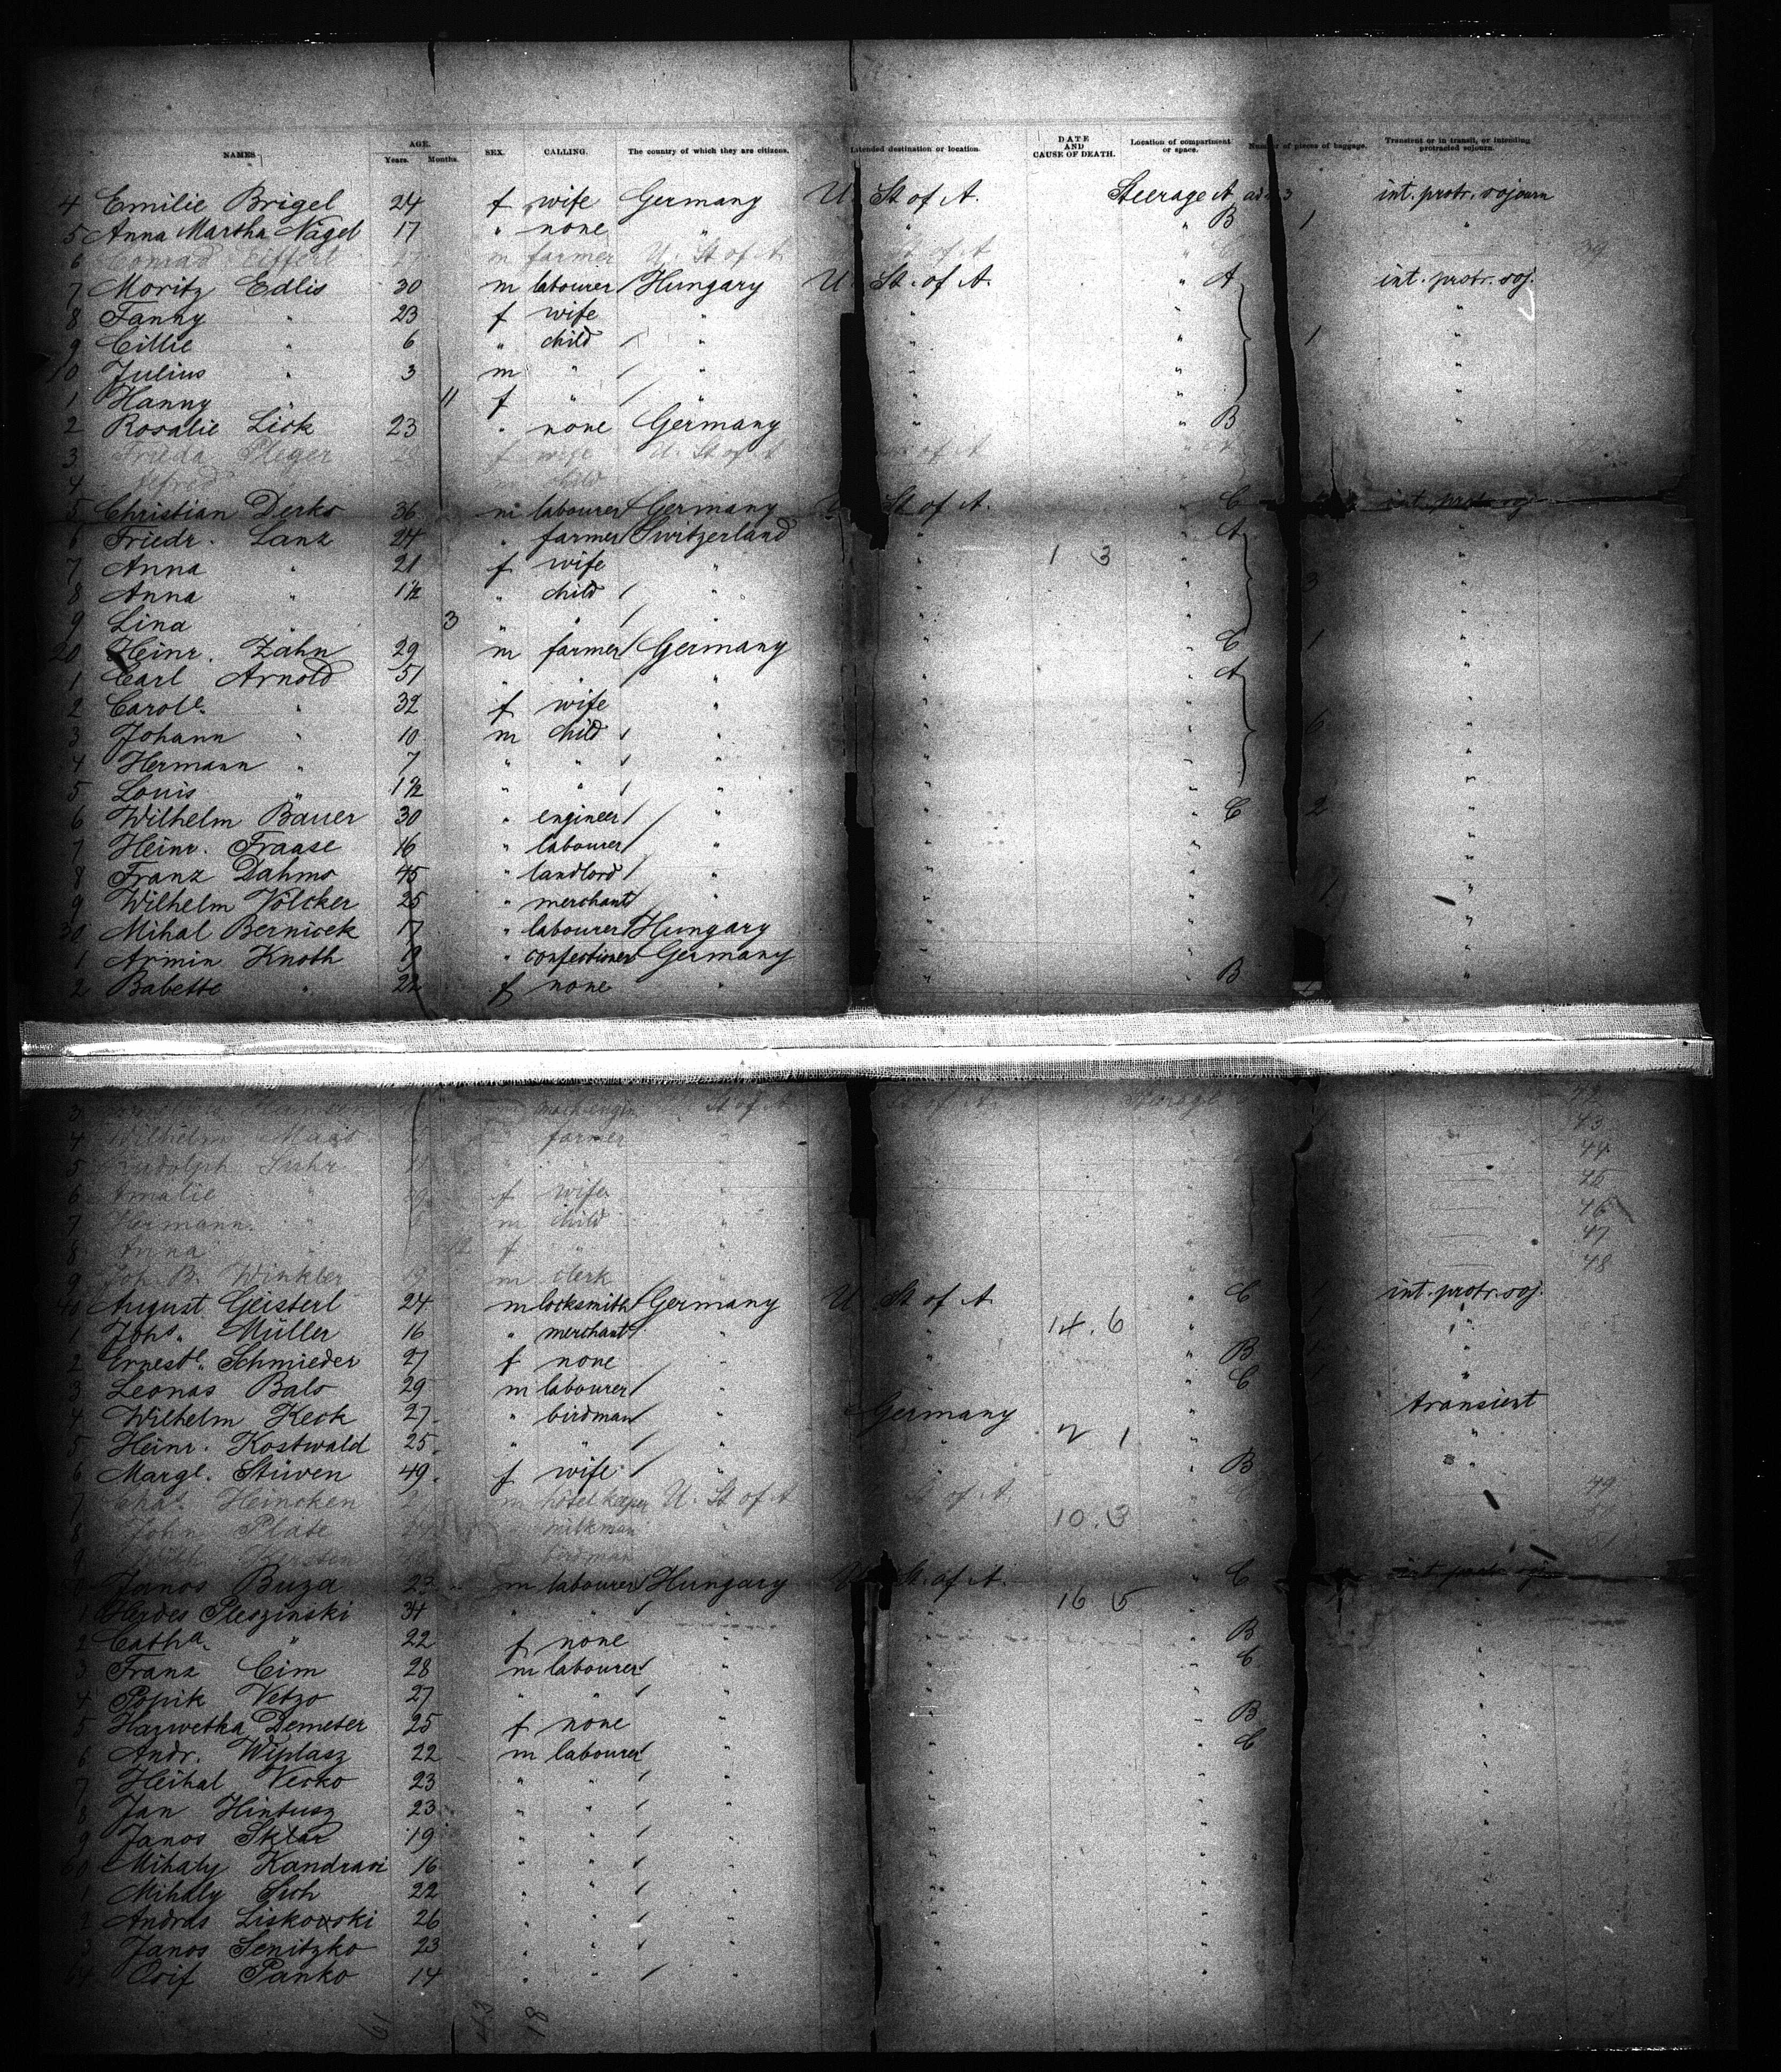 NAMES AGE. Years. Months. SEX. CALLING. The country of which they are citizens. Intended destination or location. DATE AND CAUSE OF DEATH. Location of compartment or space. Number of pieces of baggage. Transient or in transit, or intending protracted sojourn.
4 Emilie Brigel 24 f wife Germany U St of A. Steerage A 3 int. protr. sojourn
5 Anna Martha Nagel 17 " none " " " B 1 "
6 Conrad Eiffert 27 m farmer U. St of A. St of A " C 39
7 Moritz Edlis 30 m labourer Hungary U St. of A. " A int. protr. soj.
8 Fanny " 23 f wife " " " "
9 Cillie " 6 " child " " " 1 "
10 Julius " 3 m " " " " "
1 Hanny " 11 f " " " " "
2 Rosalie Lick 23 " none Germany " " B "
3 Frieda Pleger f wife U. St of A of A "
4 Alfred child
5 Christian Derks 36 m labourer Germany U St of A. " C int. protr. soj
6 Friedr. Lanz 24 " farmer Switzerland " " A "
1 3
7 Anna " 21 f wife " " " "
8 Anna " 1½ " child " " " 3 "
9 Lina " 3 " " " " " "
20 Heinr. Zahn 29 m farmer Germany " " C 1 "
1 Carl Arnold 51 " " " " " A "
2 Carole. " 32 f wife " " " "
3 Johann " 10 m child " " " 6 "
4 Hermann " 7 " " " " " "
5 Louis " 1½ " " " " " "
6 Wilhelm Bauer 30 " engineer " " " C 2 "
7 Heinr. Fraase 16 " labourer " " " "
8 Franz Dahms 45 " landlord " " " "
9 Wilhelm Völcker 25 " merchant " " " 1 "
30 Mihal Bernicek 17 " labourer Hungary " " "
1 Armin Knoth 19 " confectioner Germany " " "
2 Babette " 22 f none " " " B 1 "
3 St of A St of A. Steerage 42
4 Wilhelm Maas " farmer " 43
5 Rudolph Suhr " " " 44
6 Amalie " f wife " 45
7 Hermann. " m child " 46
8 Anna " f " 47
9 Joh. B. Winkler 19 m clerk " 48
40 August Geisterl 24 m locksmith Germany U St of A " C 1 int. protr. soj.
1 Johs. Müller 16 " merchant " " 14. 6 " "
2 Ernestl. Schmieder 27 f none " " " B 1 "
3 Leonas Balo 29 m labourer " " " C "
4 Wilhelm Keck 27 " birdman " Germany " transient
5 Heinr. Kostwald 25. " " " " 1 " "
6 Margl. Stüwen 49. f wife " " " B "
7 Chas. Heincken m hotel keeper U. St of A St of A. " C 49
8 John Plate milkman " 10. 3
9 birdman 51
Janos Buza 23 m labourer Hungary U St. of A. " C int. protr. soj
1 Pleszinski 34 " " " " 16 5 " "
2 Catha. " 22 f none " " " B "
3 Franz Cim 28 m labourer " " " C "
4 Popik Vetzo 27 " " " " " "
5 Hazwetka Demeter 25 f none " " " B "
6 Andr. Wiplasz 22 m labourer " " " C "
7 Heihal Vecko 23 " " " " " "
8 Jan Hintusz 23 " " " " " "
9 Janos Sklar 19 " " " " " "
60 Mihaly Kandrasi 16 " " " " " "
1 Mihaly Sich 22 " " " " " "
2 Andras Liskowski 26 " " " " " "
3 Janos Senitzko 23 " " " " " "
64 Osif Panko 14 " " " " " "
61 43 18